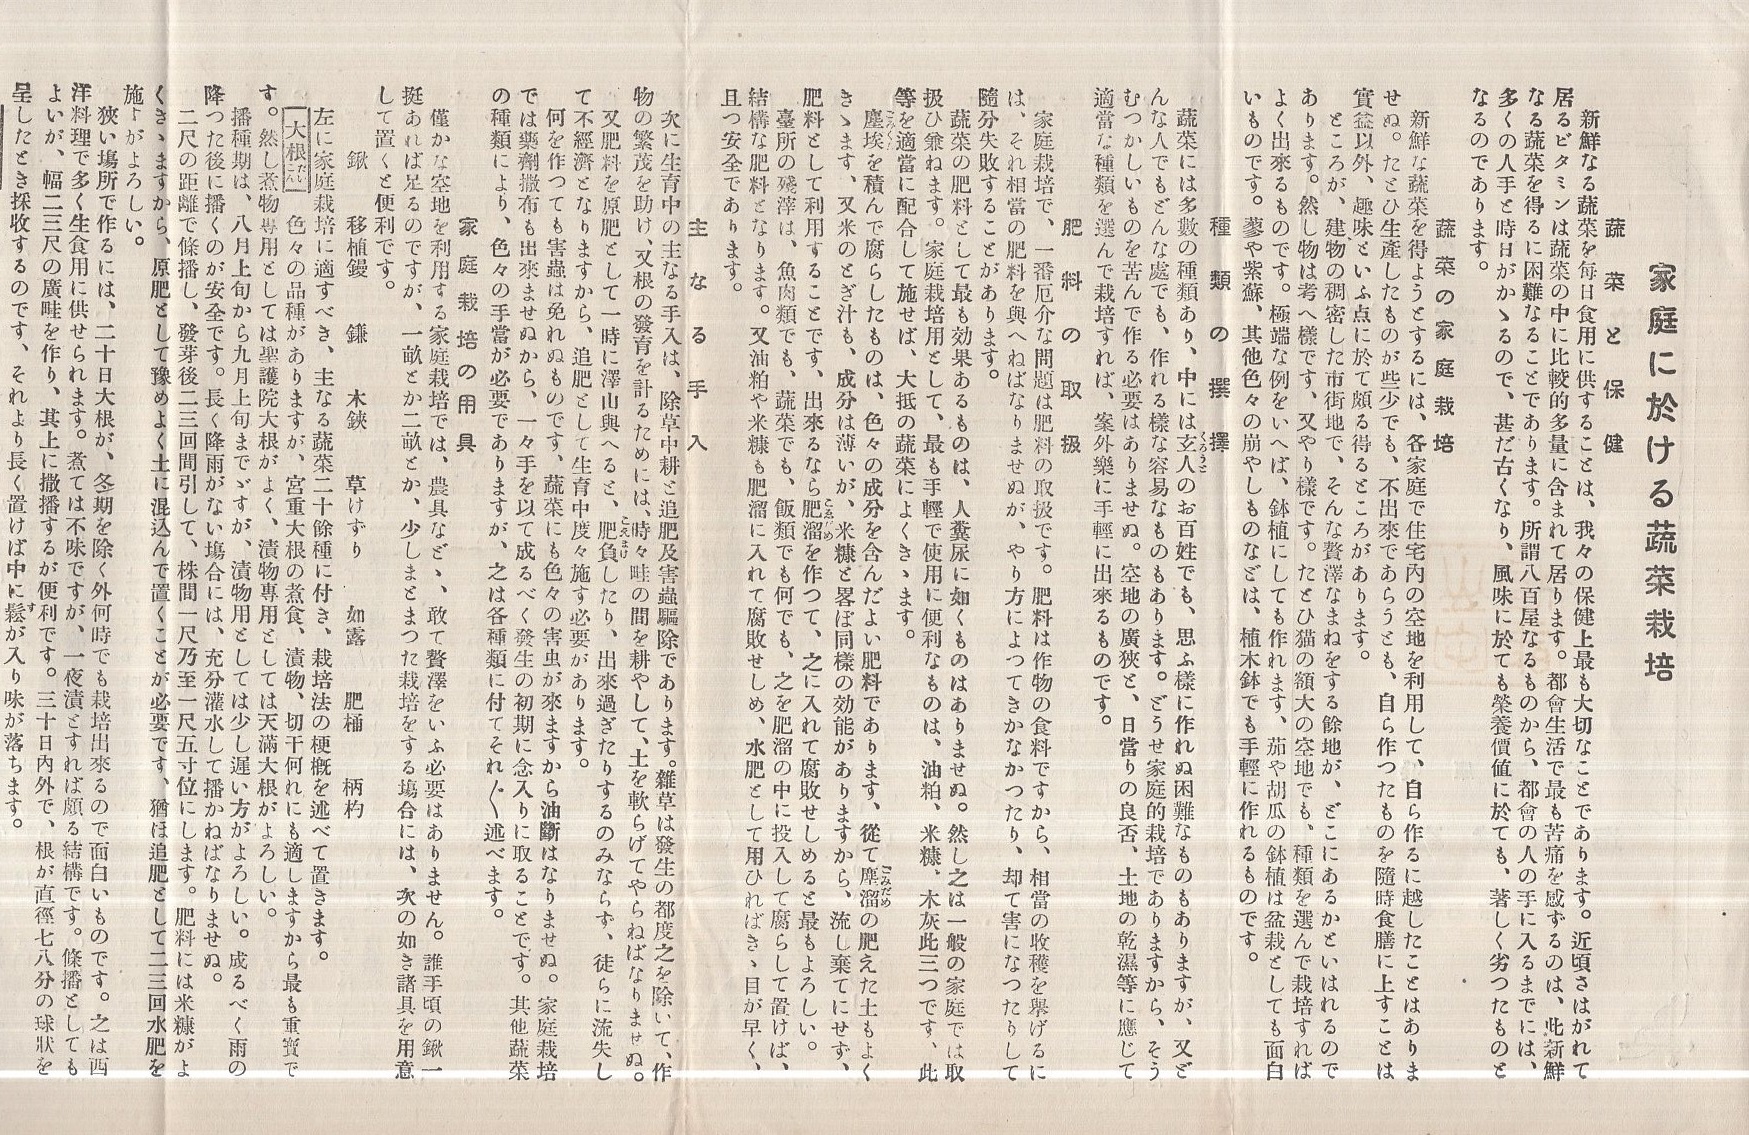 家庭に於ける蔬菜栽培
蔬菜と保健
新鮮なる蔬菜を毎日食用に供することは、我々の保健上最も大切なことであります。近頃さはがれて
居るビタミンは蔬菜の中に比較的多量に含まれて居ります。都會生活で最も苦痛を感ずるのは、此新鮮
なる蔬菜を得るに困難なることであります。所謂八百屋なるものから、都會の人の手に入るまでには、
多くの人手と時日がかゝるので、甚だ古くなり、風味に於ても榮養價値に於ても、著しく劣つたものと
なるのであります。
蔬菜の家庭栽培
新鮮な蔬菜を得ようとするには、各家庭で住宅內の空地を利用して、自ら作るに越したことはありま
せぬ。たとひ生產したものが些少でも、不出來であらうとも、自ら作つたものを隨時食膳に上すことは
實益以外、趣味といふ点に於て頗る得るところがあります。
ところが、建物の稠密した市街地で、そんな贅澤なまねをする餘地が、どこにあるかといはれるので
あります。然し物は考へ樣です、又やり樣です。たとひ猫の額大の空地でも、種類を選んで栽培すれば
よく出來るものです。極端な例をいへば、鉢植にしても作れます、茄や胡瓜の鉢植は盆栽としても面白
いものです。蓼や紫蘇、其他色々の崩やしものなどは、植木鉢でも手輕に作れるものです。
種類の撰擇
蔬菜には多數の種類あり、中には玄人のお百姓でも、思ふ樣に作れぬ困難なものもありますが、又ど
んな人でもどんな處でも、作れる樣な容易なものもあります。どうせ家庭的栽培でありますから、そう
むつかしいものを苦んで作る必要はありませぬ。空地の廣狹と、日當りの良否、土地の乾濕等に應じて
適當な種類を選んで栽培すれば、案外樂に手輕に出來るものです。
肥料の取扱
家庭栽培で、一番厄介な問題は肥料の取扱です。肥料は作物の食料ですから、相當の收穫を擧げるに
は、それ相當の肥料を與へねばなりませぬが、やり方によつてきかなかつたり、却て害になつたりして
隨分失敗することがあります。
蔬菜の肥料として最も効果あるものは、人糞尿に如くものはありませぬ。然し之は一般の家庭では取
扱ひ兼ねます。家庭栽培用として、最も手輕で使用に便利なものは、油粕、米糠、木灰此三つです、此
等を適當に配合して施せば、大抵の蔬菜によくきゝます。
塵埃を積んで腐らしたものは、色々の成分を含んだよい肥料であります、從て塵溜の肥えた土もよく
きゝます、又米のとぎ汁も、成分は薄いが、米糠と畧ぼ同樣の効能がありますから、流し棄てにせず、
肥料として利用することです、出來るなら肥溜を作つて、之に入れて腐敗せしめると最もよろしい。
臺所の殘滓は、魚肉類でも、蔬菜でも、飯類でも何でも、之を肥溜の中に投入して腐らして置けば、
結構な肥料となります。又油粕や米糠も肥溜に入れて腐敗せしめ、水肥として用ひればきゝ目が早く、
且つ安全であります。
主なる手入
次に生育中の主なる手入は、除草中耕と追肥及害蟲驅除であります。雜草は發生の都度之を除いて、作
物の繁茂を助け、又根の發育を計るためには、時々畦の間を耕やして、土を軟らげてやらねばなりませぬ。
又肥料を原肥として一時に澤山與へると、肥負したり、出來過ぎたりするのみならず、徒らに流失し
て不經濟となりますから、追肥として生育中度々施す必要があります。
何を作つても害蟲は免れぬものです、蔬菜にも色々の害虫が來ますから油斷はなりませぬ。家庭栽培
では藥劑撒布も出來ませぬから、一々手を以て成るべく發生の初期に念入りに取ることです。其他蔬菜
の種類により、色々の手當が必要でありますが、之は各種類に付てそれ〲述べます。
家庭栽培の用具
僅かな空地を利用する家庭栽培では、農具など、敢て贅澤をいふ必要はありません。誰手頃の鍬一
挺あれば足るのですが、一畝とか二畝とか、少しまとまつた栽培をする塲合には、次の如き諸具を用意
して置くと便利です。
鍬 移植鏝 鎌 木鋏 草けずり 如露 肥桶 柄杓
左に家庭栽培に適すべき、主なる蔬菜二十餘種に付き、栽培法の梗槪を述べて置きます。
大根 色々の品種がありますが、宮重大根の煮食、漬物、切干何れにも適しますから最も重寶で
す。然し煮物専用としては聖護院大根がよく、漬物專用としては天滿大根がよろしい。
播種期は、八月上旬から九月上旬までゞすが、漬物用としては少し遲い方がよろしい。成るべく雨の
降つた後に播くのが安全です。長く降雨がない塲合には、充分灌水して播かねばなりませぬ。
二尺の距離で條播し、發芽後二三回間引して、株間一尺乃至一尺五寸位にします。肥料には米糠がよ
くきゝますから、原肥として豫めよく土に混込んで置くことが必要です、猶ほ追肥として二三回水肥を
施すがよろしい。
狹い塲所で作るには、二十日大根が、冬期を除く外何時でも栽培出來るので面白いものです。之は西
洋料理で多く生食用に供せられます。煮ては不味ですが、一夜漬とすれば頗る結構です。條播としても
よいが、幅二三尺の廣畦を作り、其上に撒播するが便利です。三十日內外で、根が直徑七八分の球狀を
呈したとき採收するのです、それより長く置けば中に鬆が入り味が落ちます。